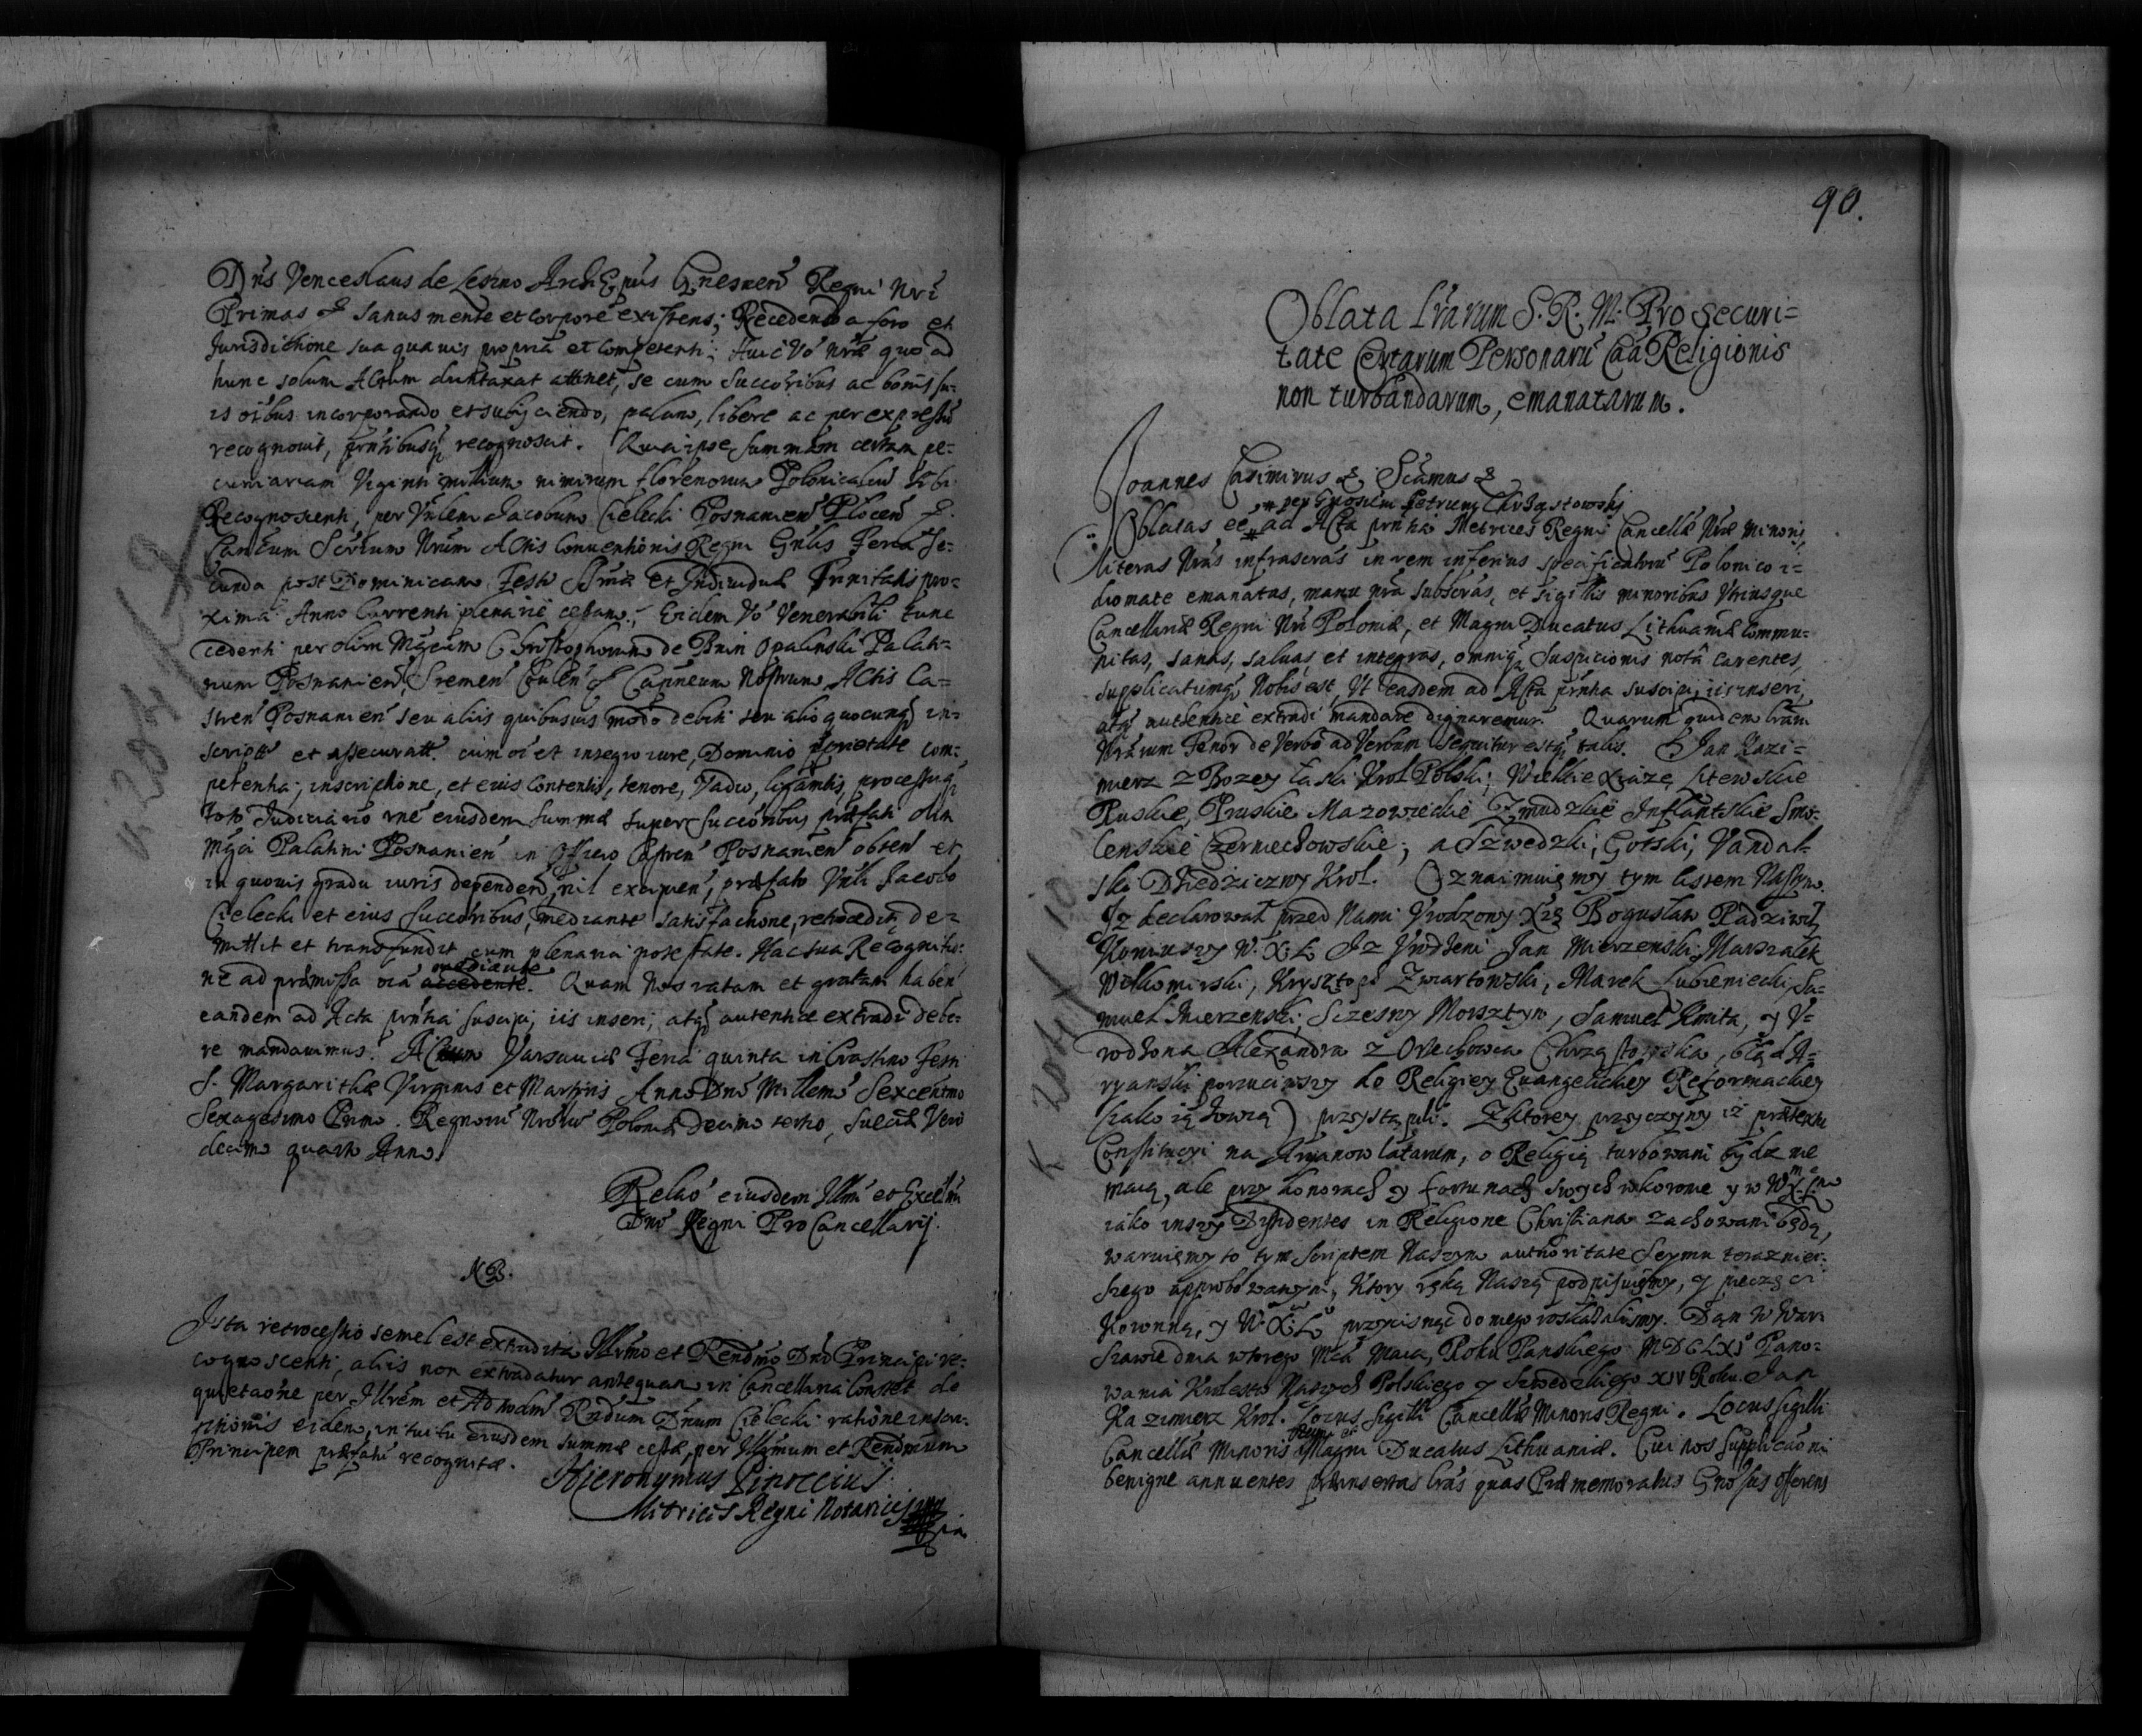 Dn̄s Venceslaus de Leszno ArchiEpūs Gnesnen̄ Regni Nrī
Primas & sanus mente et corpore existens; Recedendo a foro et
Jurisdictione sua quavis propria et competenti; Huic Vō Nrae quo ad
hunc solum Actum duntaxat attinet, se cum Succōribus ac bonis su-
is oībus incorporando et subijciendo, palam, libere ac per expressū
recognovit, prntibusq̨ recognoscit. Quia ipse summam certam pe-
cuniariam Viginti millium nimirum florenorum Polonicaliū sibi
Recognoscenti, per Vn̄lem Jacobum Cielecki Posnanien̄ Plocen̄ &.
Can̄cum Secrūm Nrūm Actis Conventionis Regni Gn̄lis Feria Se-
cunda post Dominicam Festi Smae et Individuae Trinitatis pro-
xima Anno Currenti plenarie cessam; Eidem Vō Venerabili tunc
cedenti per olim Mgcum Christophorum de Bnin Opalinski Palati-
num Posnanien̄, Sremen̄ Coulen̄ & Capneum Nostrum Actis Ca-
stren̄ Posnanien̄ seu aliis quibusvis modo debiti seu alio quocunq̨ in-
script. et assecuratt. cum oī et integro iure, Dominio prietate com-
petentia, inscriptione, et eius contentis, tenore, Vadio, ligamtis, processuq̨
toto Judiciario rne eiusdem Summae super Succōribus praefati olim
Mgci Palatini Posnanien̄ in Officio Castren̄ Posnanien̄ obten̄ et
in quovis gradu iuris dependen̄, nil excipien̄, praefato Vnli Jacobo
Cielecki et eius Succoribus, mediante satisfactione, retrocedit, de-
mittit et transfundit cum plenaria potestate. Hac sua Recognitio-
ne ad praemissa oīa mediante accedente. Quam Nos ratam et gratam haben̄
eandem ad Acta prntia suscipi, iis inseri, atq̨ autentice extradi debe-
re mandavimus. Actum Varsaviae Feria quinta in Crastino Festi
S. Margarithae Virginis et Martyris Anno Dnī Millemō Sexcentmo
Sexagesimo Primo. Regnorū Nrōrū Poloniae Decimo tertio, Sueciae Vero
decimo quarto Anno.
Relatio eiusdem Illmi et Exclmi
Dni Regni ProCancellarij.
NB.
Ista retrocessio semel est extradita Illrmo et Rendmo Dno Principi re-
cognoscenti, aliis non extradatur antequam in Cancellaria Constet de
quietaōne per Illrem et Admodm Rndum Dnum Cielecki ratione inscri-
ptionis eidem, intuitu eiusdem summae cessae, per Illrmum et Rendmum
Principem praefatū recognitae.
Hieronymus Pinoccius
Metrices Regni Notarius
90.
Oblata Lrarum S. R. M. Pro Securi=
tate Certarum Personarū Caā Religionis
non turbandarum, emanatarum.
Joannes Casimirus & Sc̄amus &
* per Gnosum Petrum Chrząstowski
Oblatas eē * ad Acta prntia Metrices Regni Cancellae Nrae Minoris
literas Nras infrascras in rem inferius specificatam Polonico i-
diomate emanatas, manu nra subscras, et sigillis minoribus Vtriusque
Cancellariae Regni Nri Poloniae, et Magni Ducatus Lithuaniae commu-
nitas, sanas, salvas et integras, omniq̨ suspicionis notâ carentes
supplicatumq̨ Nobis est, Vt easdem ad Acta prntia suscipi, iis inseri
atq̨ authenticè extradi mandare dignaremur. Quarum quidem lraru
Nrarum Tenor de Verbo ad Verbum sequitur estq̨ talis. Jan Kazi-
mierz z Bozey łaski Krol Polski, Wielkie Xiąże Litewskie
Ruskie, Pruskie Mazowieckie Zmudzkie Inflantskie Smo-
lenskie Czerniechowskie; a Szwedzki, Gotski, Vandal-
ski Dziedziczny Krol. Oznaimuięmy tym listem Naszym
Jz declarował przed Nami Vrodzony Xżę Bogusław Radziwił
Koniuszy W. X. L. Jz Vrodzeni Jan Mierzenski Marszałek
Wiłkomirski, Krysztoph Zwartowski, Marek Lubieniecki, Sa-
muel Mierzenski, Sczesny Morsztyn, Samuel Kmita, y V-
rodzona Alexandra z Orzechowca Chrząstowska, błąd A-
ryanski porzuciwszy do Religiey Euangelickiey Reformackiey
(iako ią zowią) przystąpili. Zktorey przyczyny iż praetextu
Constitucyi na Aryanow latarum, o Religią turbowani bydz nie
maią, ale przy honorach y fortunach swych wkoronie y w W. X. L.
iako inszy Dissidentes in Religione Christiana zachowani będą,
waruięmy to tym scriptem Naszym authoritate Seymu teraznie-
szego approbowanym, Ktory ręką Naszą podpisuięmy, y pieczęci
Koronną, y W. X. L. przycisnąć do niego roskazalismy. Dan w War-
szawie dnia wtorego Mca Maia, Roku Panskiego MDCLXI Pano-
wania Krolestw Naszych Polskiego y Szwedzkiego XIV Roku. Jan
Kazimierz Krol. Locus Sigilli Cancellae Minoris Regni. Locus Sigilli
Cancellae Minoris Magni Ducatus Lithuaniae. Cui nos Supplicaōni
benigne annuentes praeinsertas lras quas Praememoratus Gnosus offerens